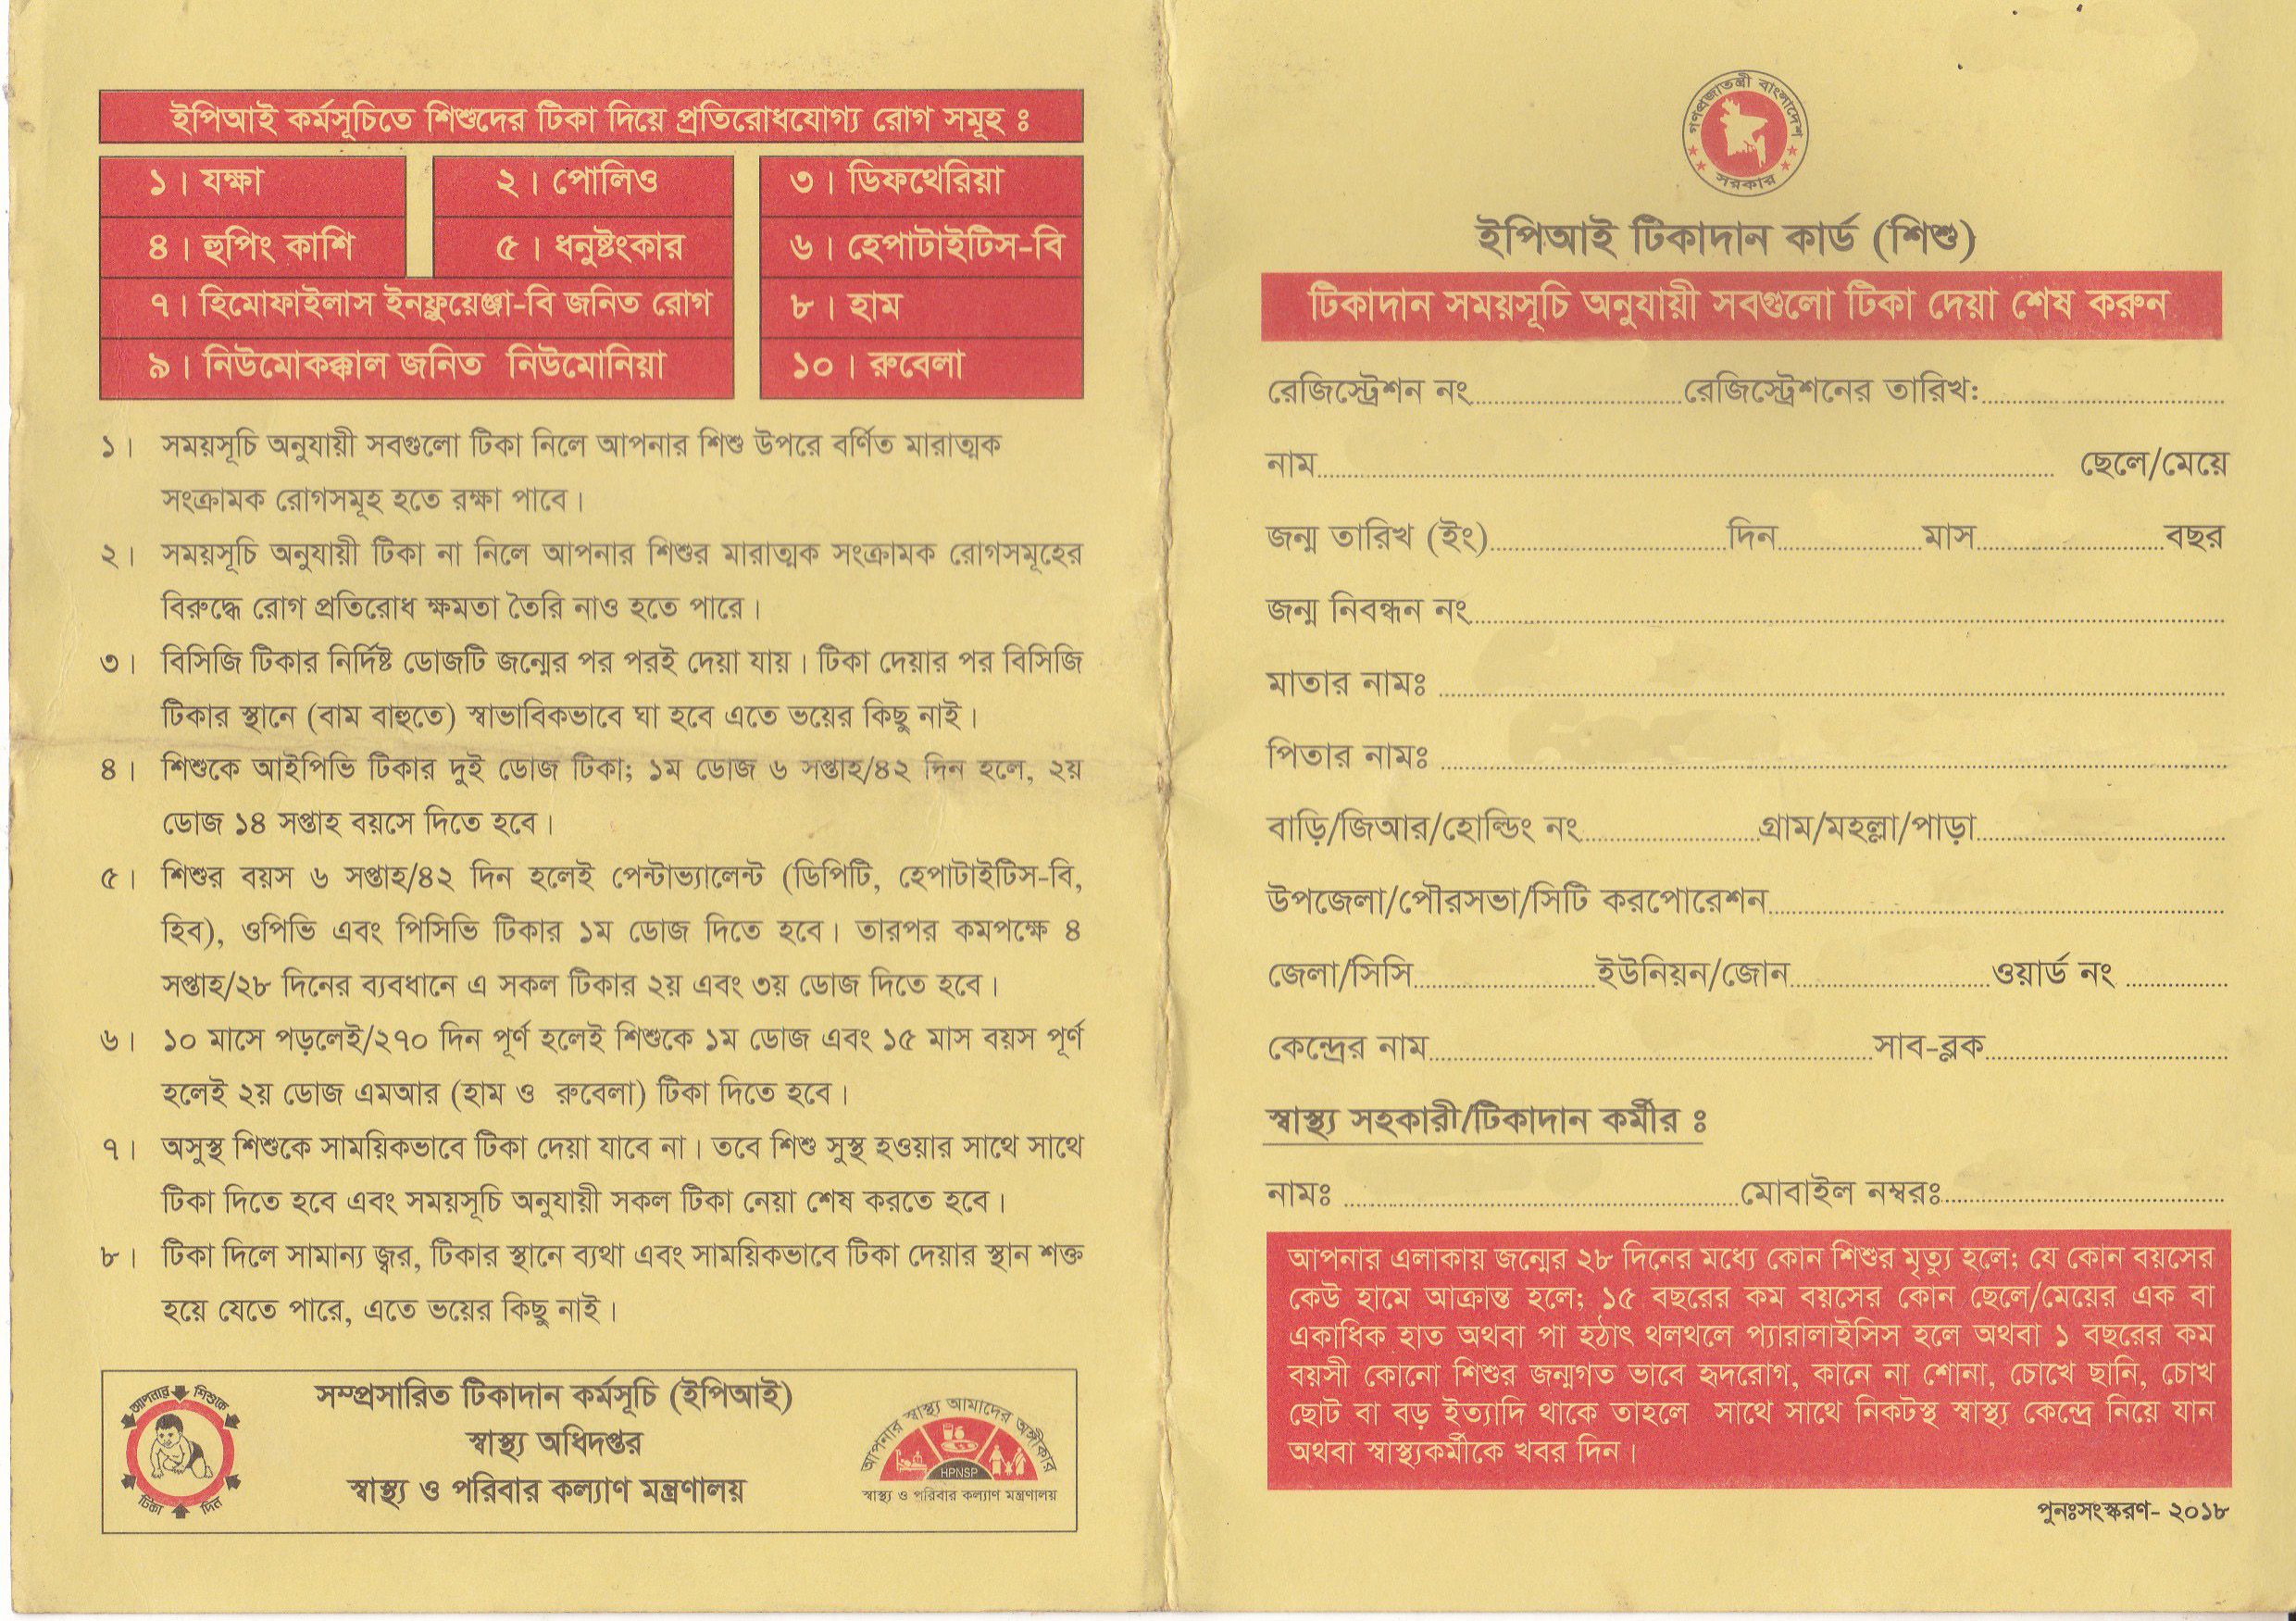 ইপিআই কর্মসূচিতে শিশুদের টিকা দিয়ে প্রতিরোধযোগ্য রোগ সমূহ ঃ
১। যক্ষা
২। পোলিও
৩। ডিফথেরিয়া
৪। হুপিং কাশি
৫। ধনুষ্টংকার
৬। হেপাটাইটিস-বি
৭। হিমোফাইলাস ইনফ্লুয়েঞ্জা-বি জনিত রোগ
৮। হাম
৯। নিউমোকক্কাল জনিত নিউমোনিয়া
১০। রুবেলা
১। সময়সূচি অনুযায়ী সবগুলো টিকা নিলে আপনার শিশু উপরে বর্ণিত মারাত্মক
সংক্রামক রোগসমূহ হতে রক্ষা পাবে।
২। সময়সূচি অনুযায়ী টিকা না নিলে আপনার শিশুর মারাত্মক সংক্রামক রোগসমূহের
বিরুদ্ধে রোগ প্রতিরোধ ক্ষমতা তৈরি নাও হতে পারে।
৩। বিসিজি টিকার নির্দিষ্ট ডোজটি জন্মের পর পরই দেয়া যায়। টিকা দেয়ার পর বিসিজি
টিকার স্থানে (বাম বাহুতে) স্বাভাবিকভাবে ঘা হবে এতে ভয়ের কিছু নাই।
৪। শিশুকে আইপিভি টিকার দুই ডোজ টিকা; ১ম ডোজ ৬ সপ্তাহ/৪২ দিন হলে, ২য়
ডোজ ১৪ সপ্তাহ বয়সে দিতে হবে।
৫। শিশুর বয়স ৬ সপ্তাহ/৪২ দিন হলেই পেন্টাভ্যালেন্ট (ডিপিটি, হেপাটাইটিস-বি,
হিব), ওপিভি এবং পিসিভি টিকার ১ম ডোজ দিতে হবে। তারপর কমপক্ষে ৪
সপ্তাহ/২৮ দিনের ব্যবধানে এ সকল টিকার ২য় এবং ৩য় ডোজ দিতে হবে।
৬। ১০ মাসে পড়লেই/২৭০ দিন পূর্ণ হলেই শিশুকে ১ম ডোজ এবং ১৫ মাস বয়স পূর্ণ
হলেই ২য় ডোজ এমআর (হাম ও রুবেলা) টিকা দিতে হবে।
৭। অসুস্থ শিশুকে সাময়িকভাবে টিকা দেয়া যাবে না। তবে শিশু সুস্থ হওয়ার সাথে সাথে
টিকা দিতে হবে এবং সময়সূচি অনুযায়ী সকল টিকা নেয়া শেষ করতে হবে।
৮। টিকা দিলে সামান্য জ্বর, টিকার স্থানে ব্যথা এবং সাময়িকভাবে টিকা দেয়ার স্থান শক্ত
হয়ে যেতে পারে, এতে ভয়ের কিছু নাই।
আপনার শিশুকে
টিকা দিন
সম্প্রসারিত টিকাদান কর্মসূচি (ইপিআই)
স্বাস্থ্য অধিদপ্তর
স্বাস্থ্য ও পরিবার কল্যাণ মন্ত্রণালয়
আপনার স্বাস্থ্য আমাদের অঙ্গীকার
HPNSP
স্বাস্থ্য ও পরিবার কল্যাণ মন্ত্রণালয়
গণপ্রজাতন্ত্রী বাংলাদেশ
সরকার
ইপিআই টিকাদান কার্ড (শিশু)
টিকাদান সময়সূচি অনুযায়ী সবগুলো টিকা দেয়া শেষ করুন
রেজিস্ট্রেশন নং..........রেজিস্ট্রেশনের তারিখ:..........
নাম.......... ছেলে/মেয়ে
জন্ম তারিখ (ইং)..........দিন..........মাস..........বছর
জন্ম নিবন্ধন নং..........
মাতার নামঃ ..........
পিতার নামঃ ..........
বাড়ি/জিআর/হোল্ডিং নং..........গ্রাম/মহল্লা/পাড়া..........
উপজেলা/পৌরসভা/সিটি করপোরেশন..........
জেলা/সিসি..........ইউনিয়ন/জোন..........ওয়ার্ড নং ..........
কেন্দ্রের নাম..........সাব-ব্লক..........
স্বাস্থ্য সহকারী/টিকাদান কর্মীর ঃ
নামঃ ..........মোবাইল নম্বরঃ..........
আপনার এলাকায় জন্মের ২৮ দিনের মধ্যে কোন শিশুর মৃত্যু হলে; যে কোন বয়সের
কেউ হামে আক্রান্ত হলে; ১৫ বছরের কম বয়সের কোন ছেলে/মেয়ের এক বা
একাধিক হাত অথবা পা হঠাৎ থলথলে প্যারালাইসিস হলে অথবা ১ বছরের কম
বয়সী কোনো শিশুর জন্মগত ভাবে হৃদরোগ, কানে না শোনা, চোখে ছানি, চোখ
ছোট বা বড় ইত্যাদি থাকে তাহলে সাথে সাথে নিকটস্থ স্বাস্থ্য কেন্দ্রে নিয়ে যান
অথবা স্বাস্থ্যকর্মীকে খবর দিন।
পুনঃসংস্করণ- ২০১৮